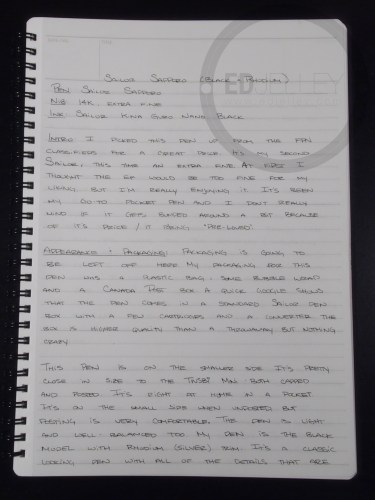 Sailor Sapporo (Black & Rhodium)
Pen Sailor Sapporo
Nib 14k, extra fine
Ink Sailor Kiwa Guro Nano Black
Intro I picked this pen up from the FPN
classifieds for a great price. It's my second
Sailor, this time an extra fine. At first I
thought the EF would be too fine for my
liking but I'm really enjoying it. It's been
my go-to pocket pen and I don't really
mind if it gets bumped around a bit because
of it's price / it being "pre-loved".
Appearance & Packaging: Packaging is going to
be left off here. My packaging for this
pen was a plastic bag, some bubble wrap
and a Canada Post box. A quick Google shows
that the pen comes in a standard Sailor pen
box with a few cartridges and a converter. The
box is higher quality than a throwaway but nothing
crazy.
This pen is on the smaller side. It's pretty
close in size to the TWSBI Mini both capped
and posted. It's right at home in a pocket.
It's on the small side when unposted but
posting is very comfortable. The pen is light
and well balanced too. My pen is the black
model with rhodium (silver) trim. It's a classic
looking pen with all of the details that are
ED